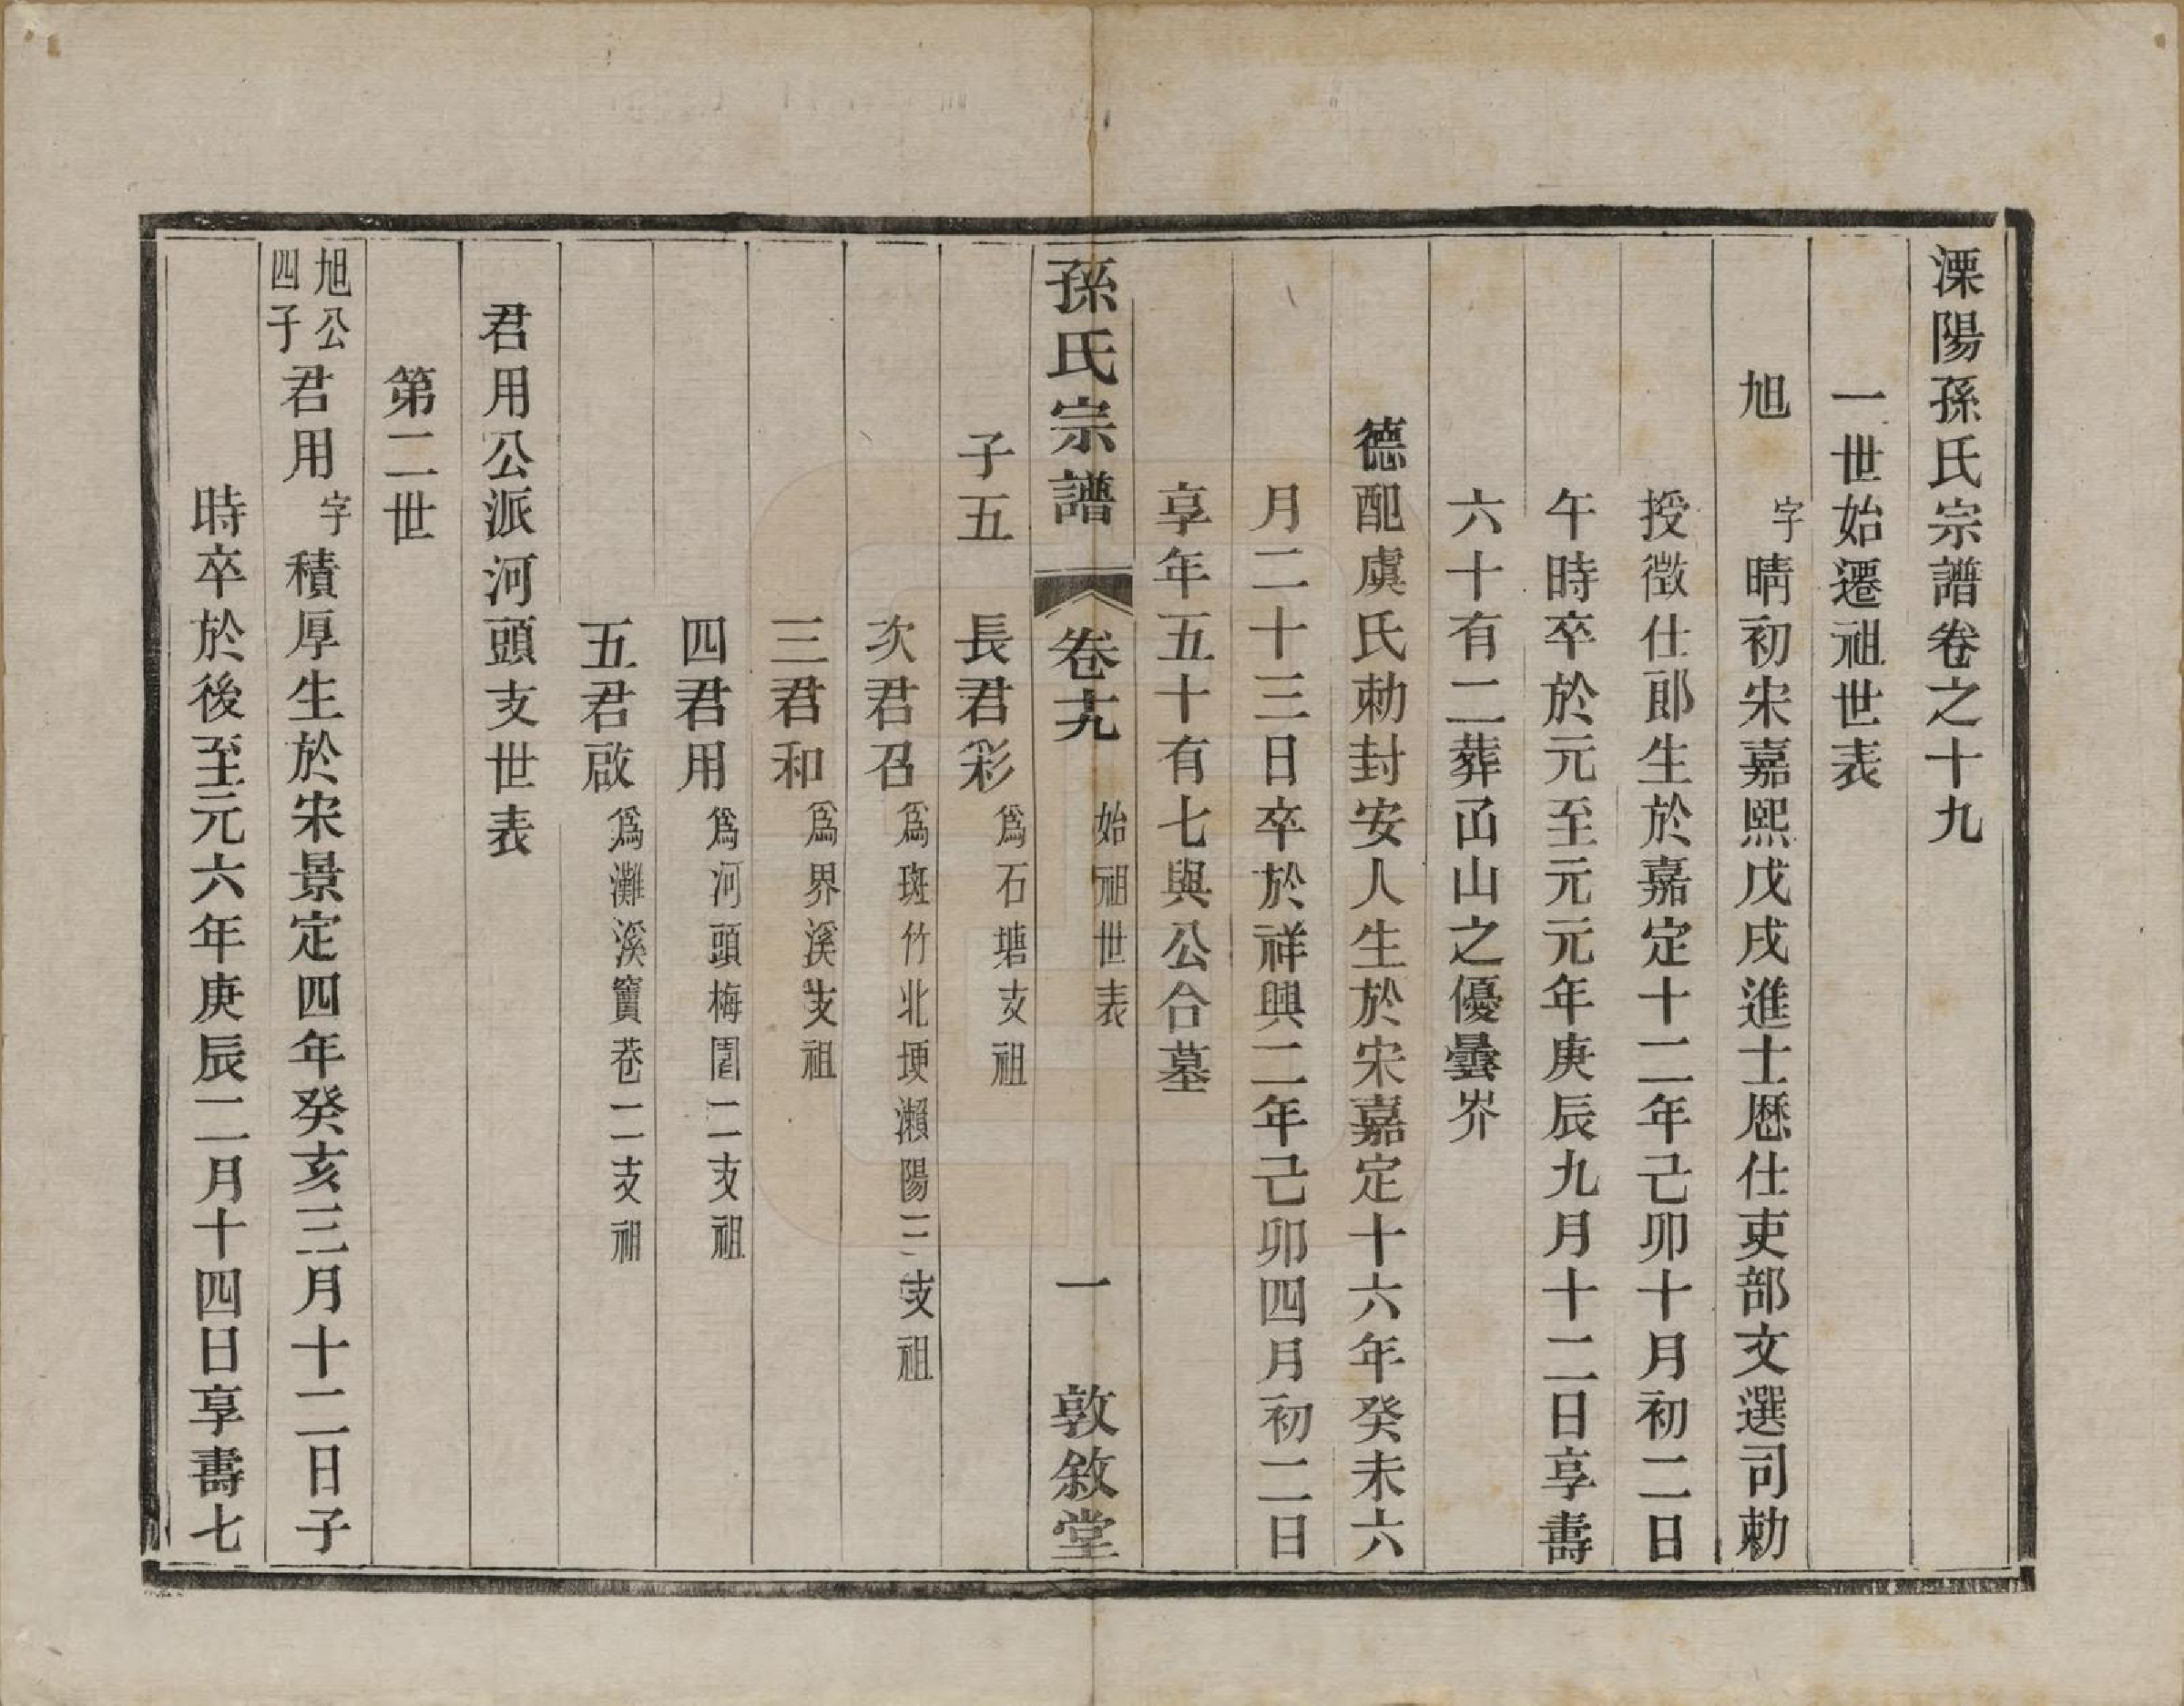 溧陽孫氏宗譜卷之十九
一世始遷祖世表
旭 字晴初宋嘉熙戊戌進士歷仕吏部文選司勅
授徵仕郎生於嘉定十二年己卯十月初二日
午時卒於元至元元年庚辰九月十二日享壽
六十有二葬凾山之優曇岕
德配虞氏勅封安人生於宋嘉定十六年癸未六
月二十三日卒於祥興二年己卯四月初二日
享年五十有七與公合墓
孫氏宗譜 卷十九 始祖世表 一 敦敘堂
子五 長君彩 爲石塘支祖
次君召 爲斑竹北埂瀨陽三支祖
三君和 爲界溪支祖
四君用 爲河頭梅園二支祖
五君啟 爲灘溪竇巷二支祖
君用公派河頭支世表
第二世
旭公四子 君用 字積厚生於宋景定四年癸亥三月十二日子
時卒於後至元六年庚辰二月十四日享壽七